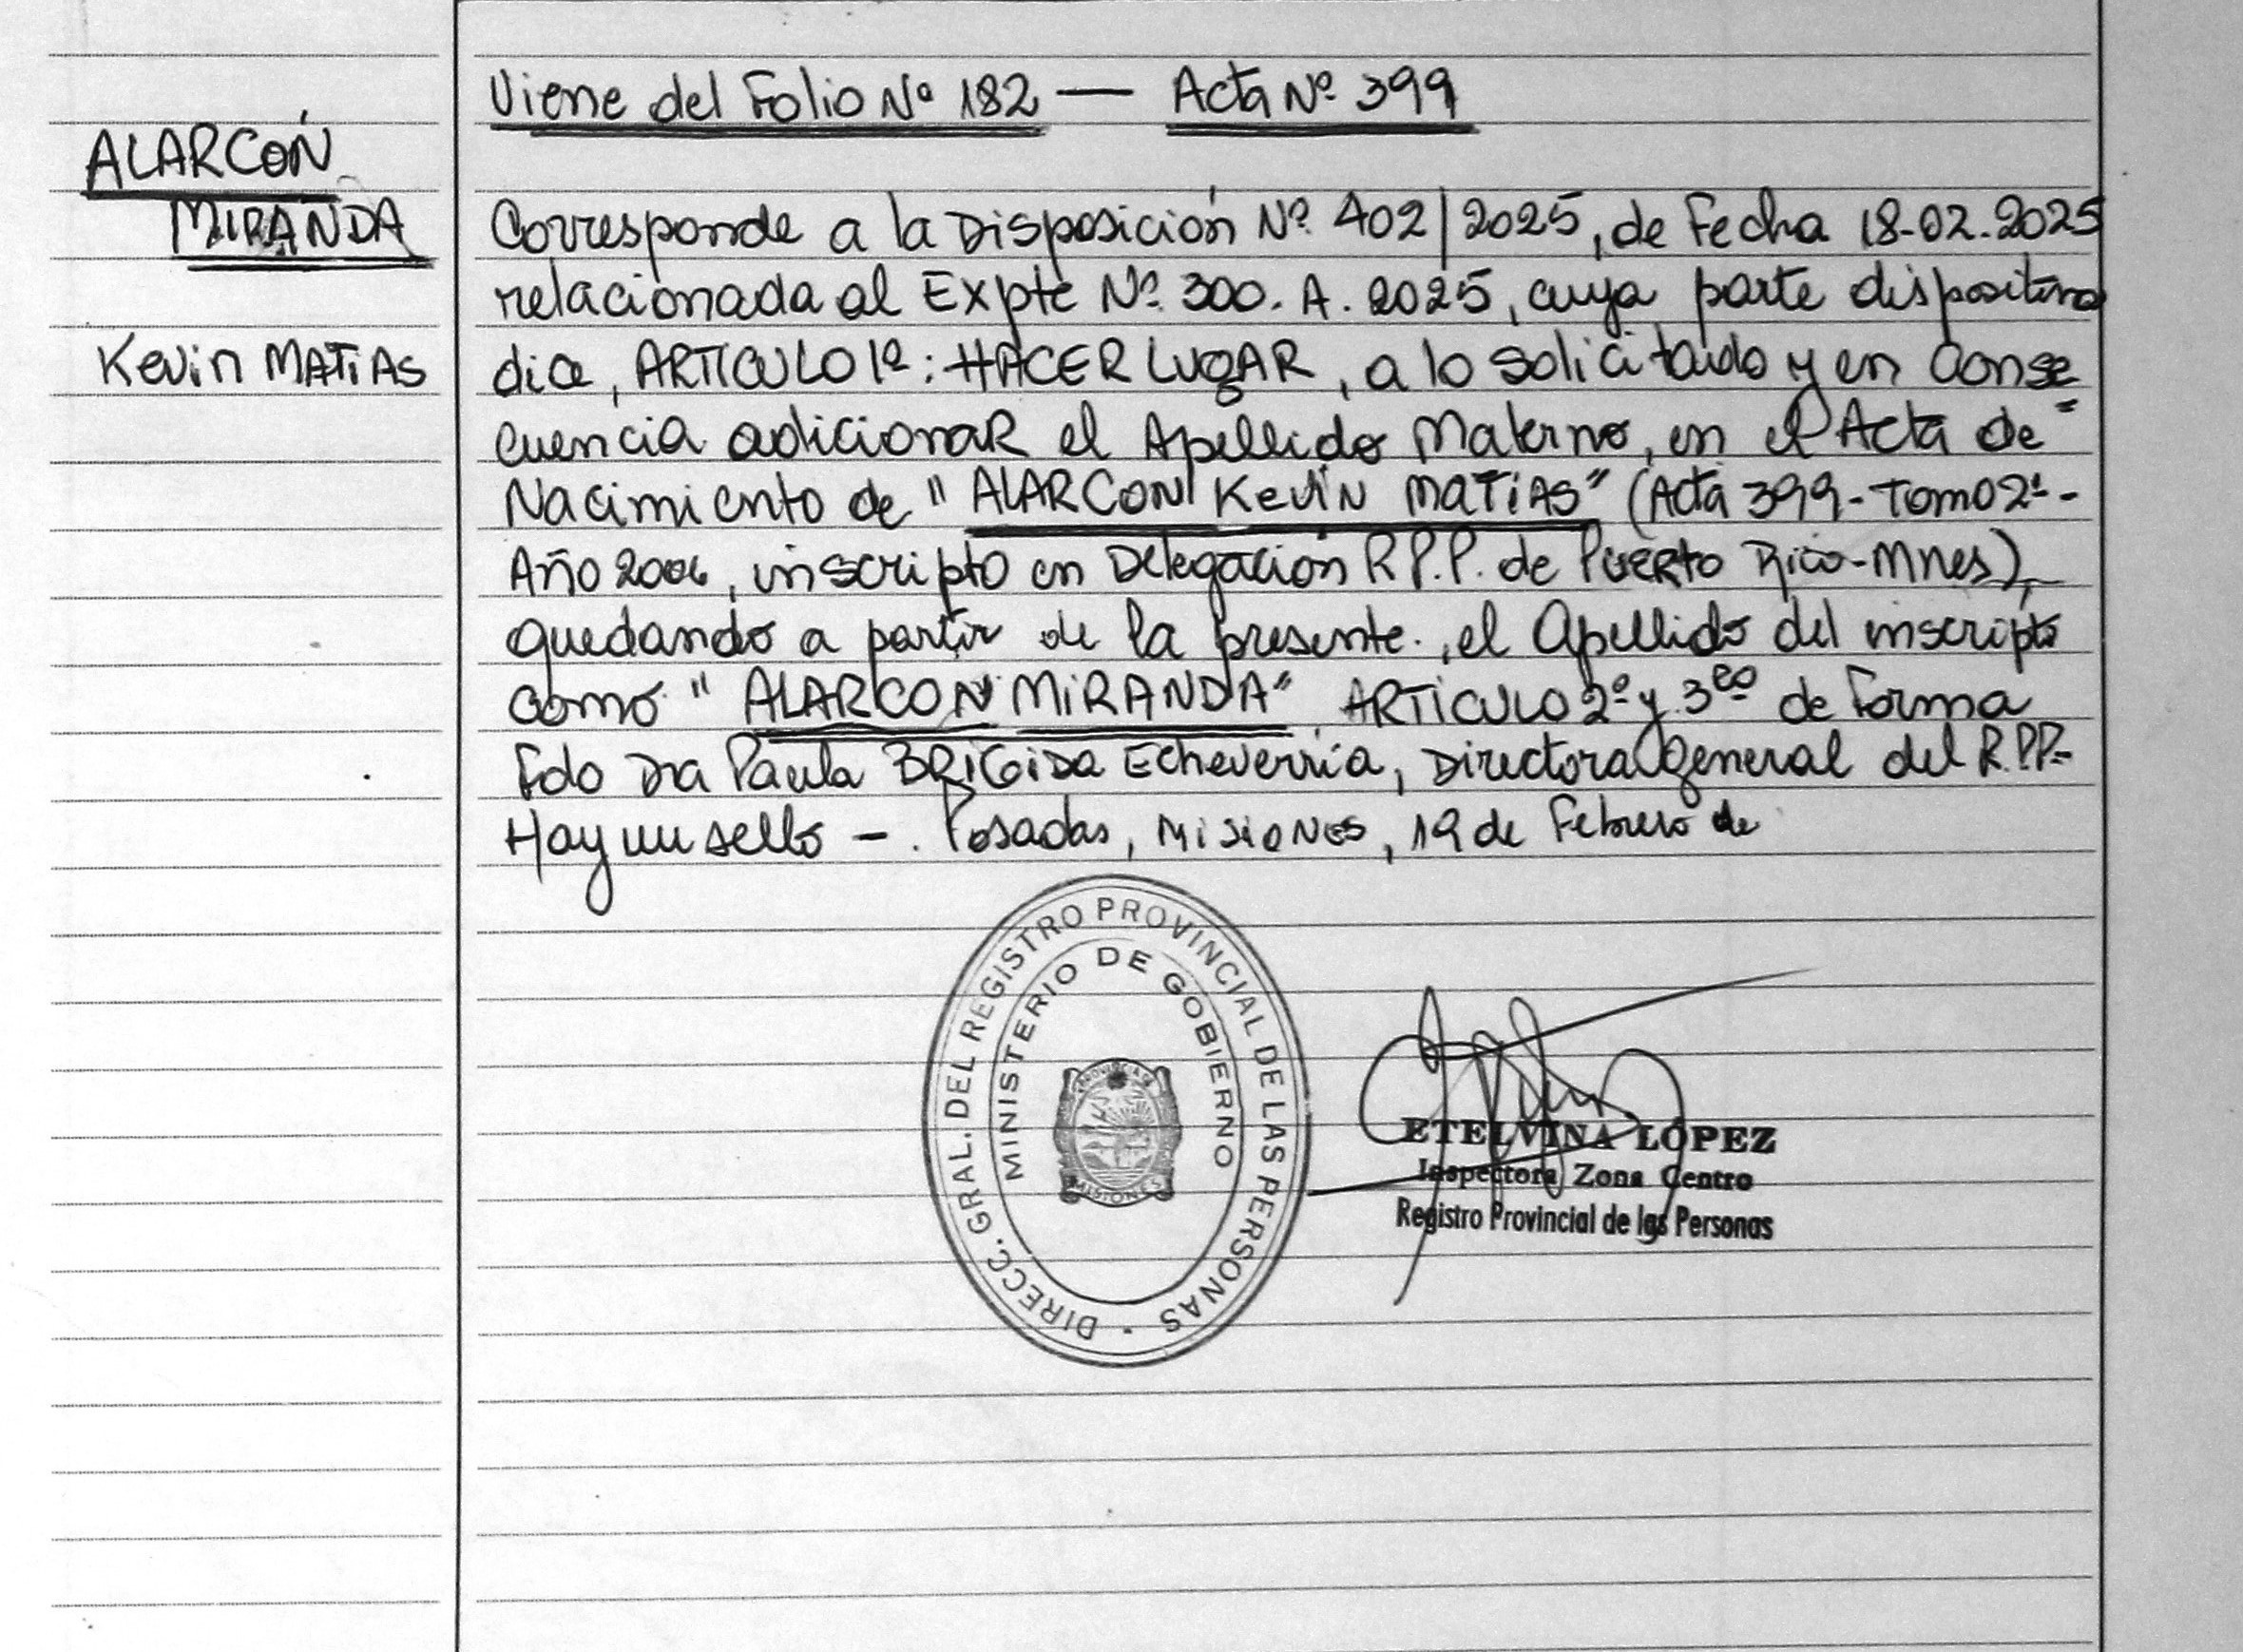 Viene del Folio Nº 182 — Acta Nº 399
ALARCÓN
MIRANDA
Kevin MATIAS
Corresponde a la Disposición Nº 402/2025, de Fecha 18-02.2025
relacionada al Expte Nº 300. A. 2025, cuya parte dispositiva
dice, ARTICULO 1º: HACER LUGAR, a lo solicitado y en Conse
cuencia adicionar el Apellido Materno, en el Acta de
Nacimiento de "ALARCON Kevin MATIAS" (Acta 399-Tomo 2º-
Año 2006, inscripto en Delegación R.P.P. de Puerto Rico-Mnes),
quedando a partir de la presente, el Apellido del inscripto
como "ALARCON MIRANDA". ARTICULO 2º y 3ero de Forma
Fdo Dra Paula BRIGIDA Echeverría, Directora General del R.P.P.-
Hay un sello -. Posadas, MISIONES, 19 de Febrero de
DIRECC. GRAL. DEL REGISTRO PROVINCIAL DE LAS PERSONAS
MINISTERIO DE GOBIERNO
PROVINCIA DE
MISIONES
ETELVINA LÓPEZ
Inspectora Zona Centro
Registro Provincial de las Personas